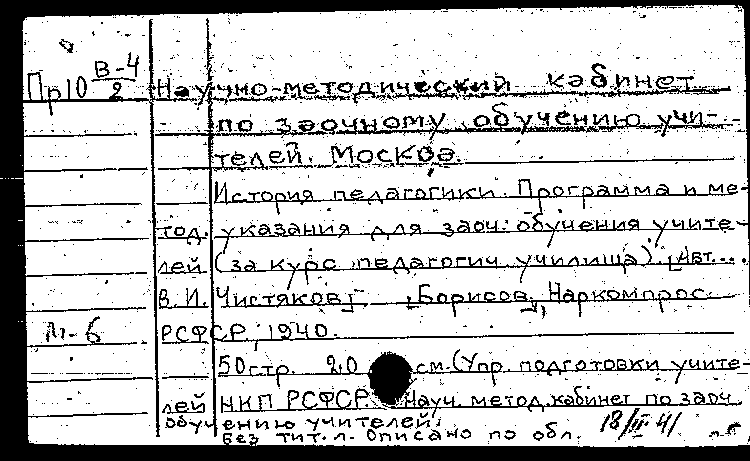 Пр10 В-4/2 Научно-методический кабинет
по заочному обучению учи-
телей. Москва.
История педагогики. Программа и ме-
тод. указания для заоч. обучения учите-
лей (за курс педагогич. училища). [Авт....
В. И. Чистяков]. [Борисов], Наркомпрос
М-6 РСФСР, 1940.
50 стр. 20 см. (Упр. подготовки учите-
лей НКП РСФСР. Науч. метод. кабинет по заоч.
обучению учителей.
Без тит. л. Описано по обл. 18/II-41